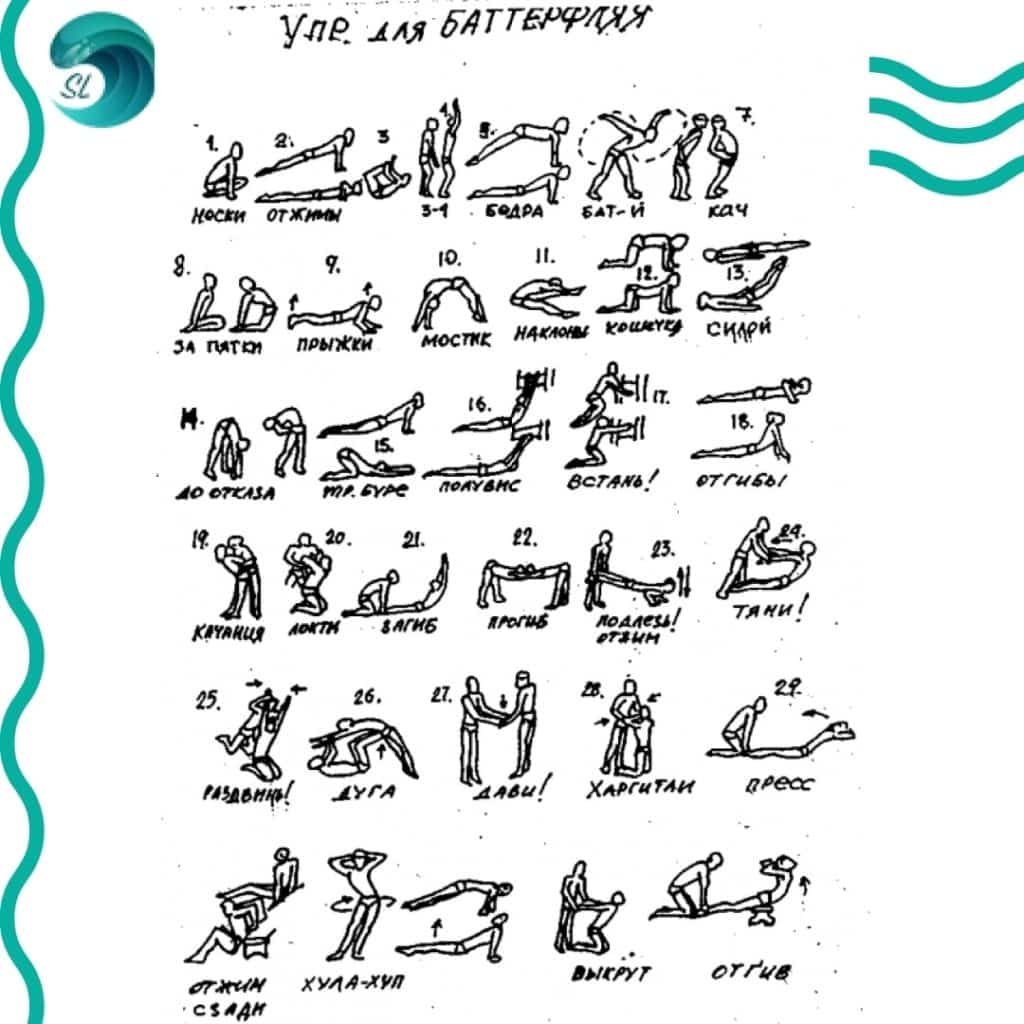 УПР. для БАТТЕРФЛЯЯ
SL
1. 2. 3 4. 5. 7.
НОСКИ ОТЖИМЫ 3-4 БЕДРА БАТ-Й КАЧ
8. 9. 10. 11. 12. 13.
ЗА ПЯТКИ ПРЫЖКИ МОСТИК НАКЛОНЫ
14. 15. 16. 17. 18.
ДО ОТКАЗА ПОЛУВИС ВСТАНЬ! ОТГИБЫ
19. 20. 21. 22. 23. 24.
ЛОКТИ ЗАГИБ ПРОГИБ ПОДЛЕЗЬ! ТЯНИ!
ОТЖИМ
25. 26. 27. 28. 29.
РАЗДВИНЬ! ДУГА ДАВИ! ХАРГИТАИ ПРЕСС
ОТЖИМ ХУЛА-ХУП ВЫКРУТ ОТГИБ
СЗАДИ